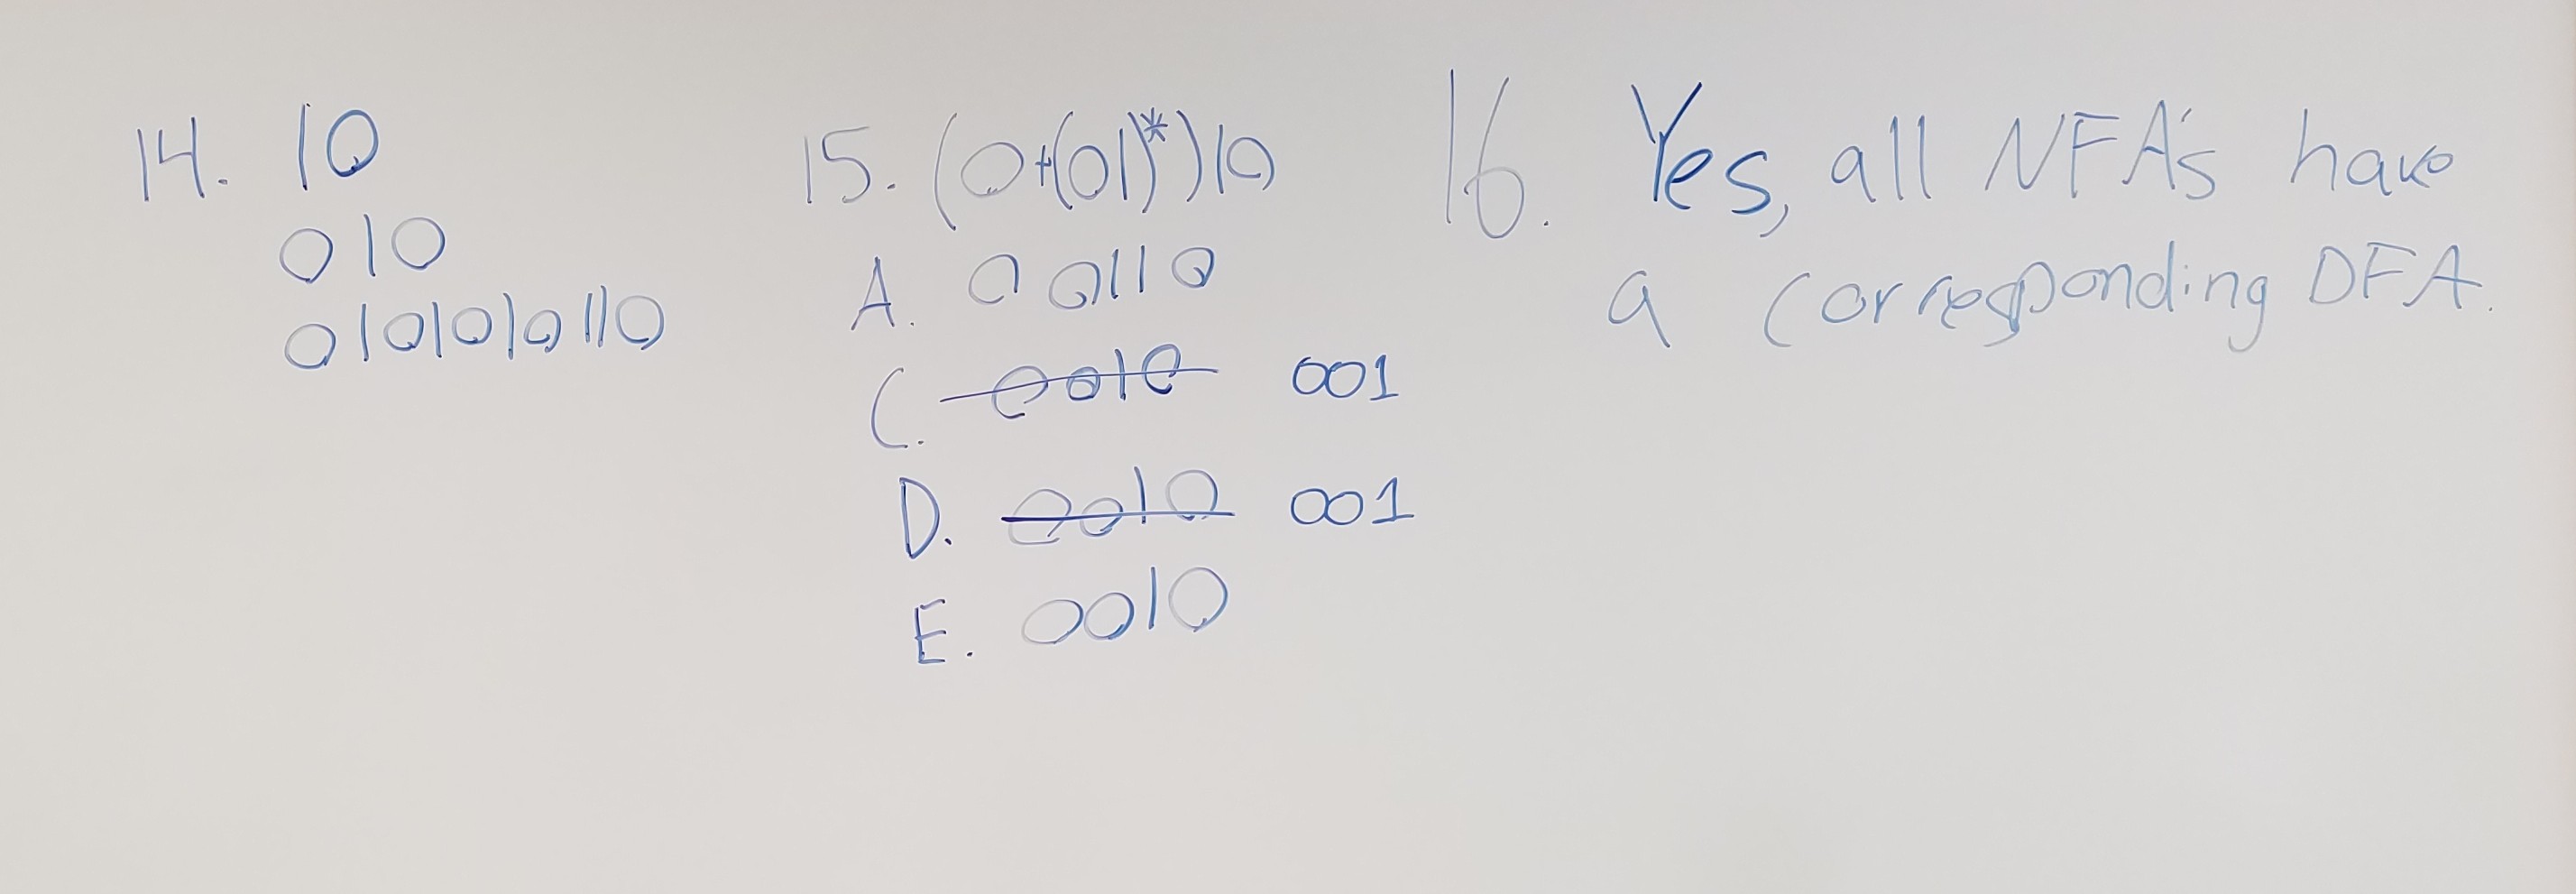 14. 10
010
0101010110
15. (0+(01)*)10
A. 00110
C. 0010 001
D. 0010 001
E. 0010
16. Yes, all NFA's have
a corresponding DFA.